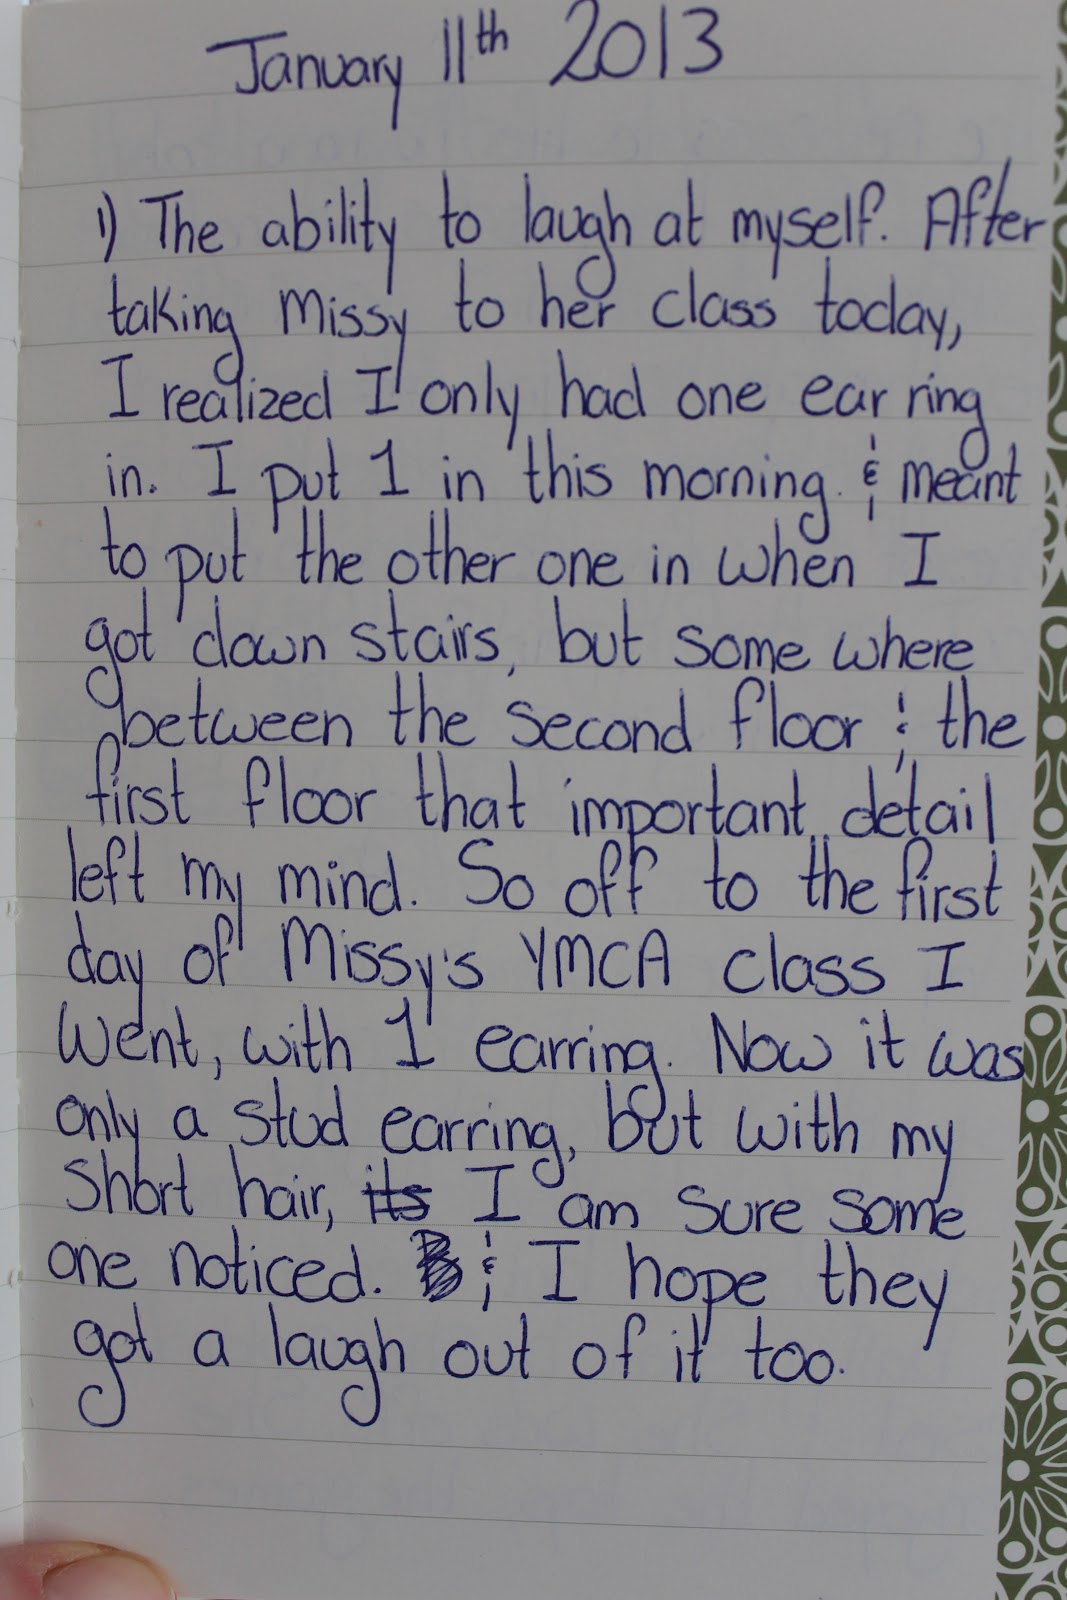 January 11th 2013
1) The ability to laugh at myself. After
taking Missy to her class today,
I realized I only had one ear ring
in. I put 1 in this morning. & meant
to put the other one in when I
got down stairs, but some where
between the second floor & the
first floor that important detail
left my mind. So off to the first
day of Missy's YMCA class I
went, with 1 earring. Now it was
only a stud earring, but with my
short hair, its I am sure some
one noticed. & I hope they
got a laugh out of it too.